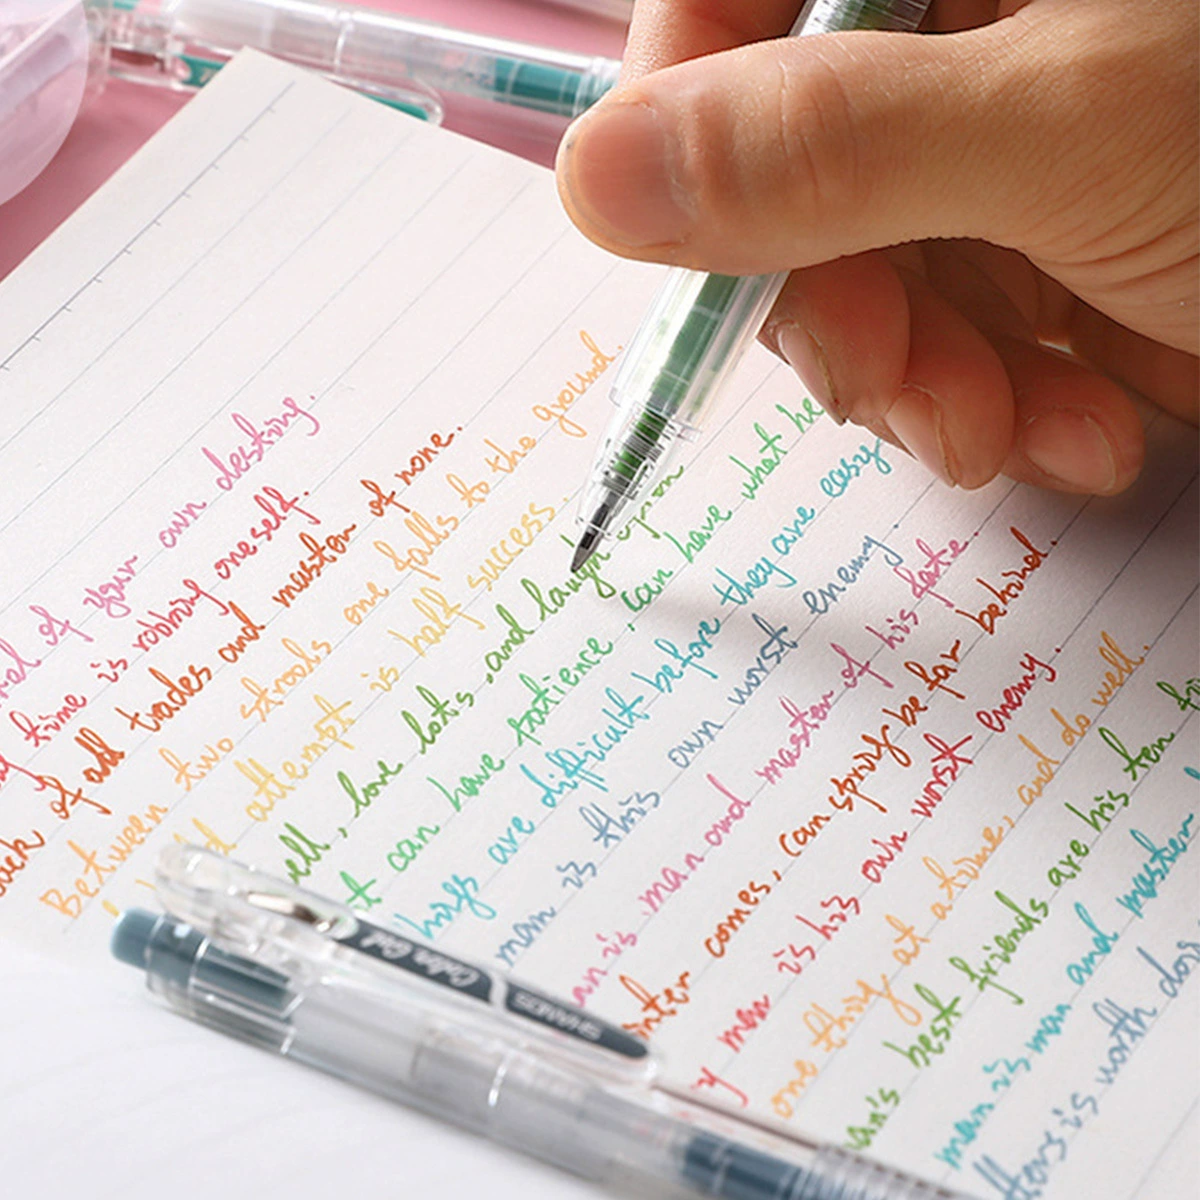 of your own destiny.
time is robbing oneself.
of all trades and master of none.
Between two strools one falls to the ground.
attempt is half success.
well, love lots, and laugh upon
can have patience, can have what he
things are difficult before they are easy
man is this own worst enemy.
man is man and master of his fate.
winter comes, can spring be far behind.
man is his own worst enemy.
one thing at a time, and do well.
man's best friends are his ten
man is man and master
is worth doing
Color Gel